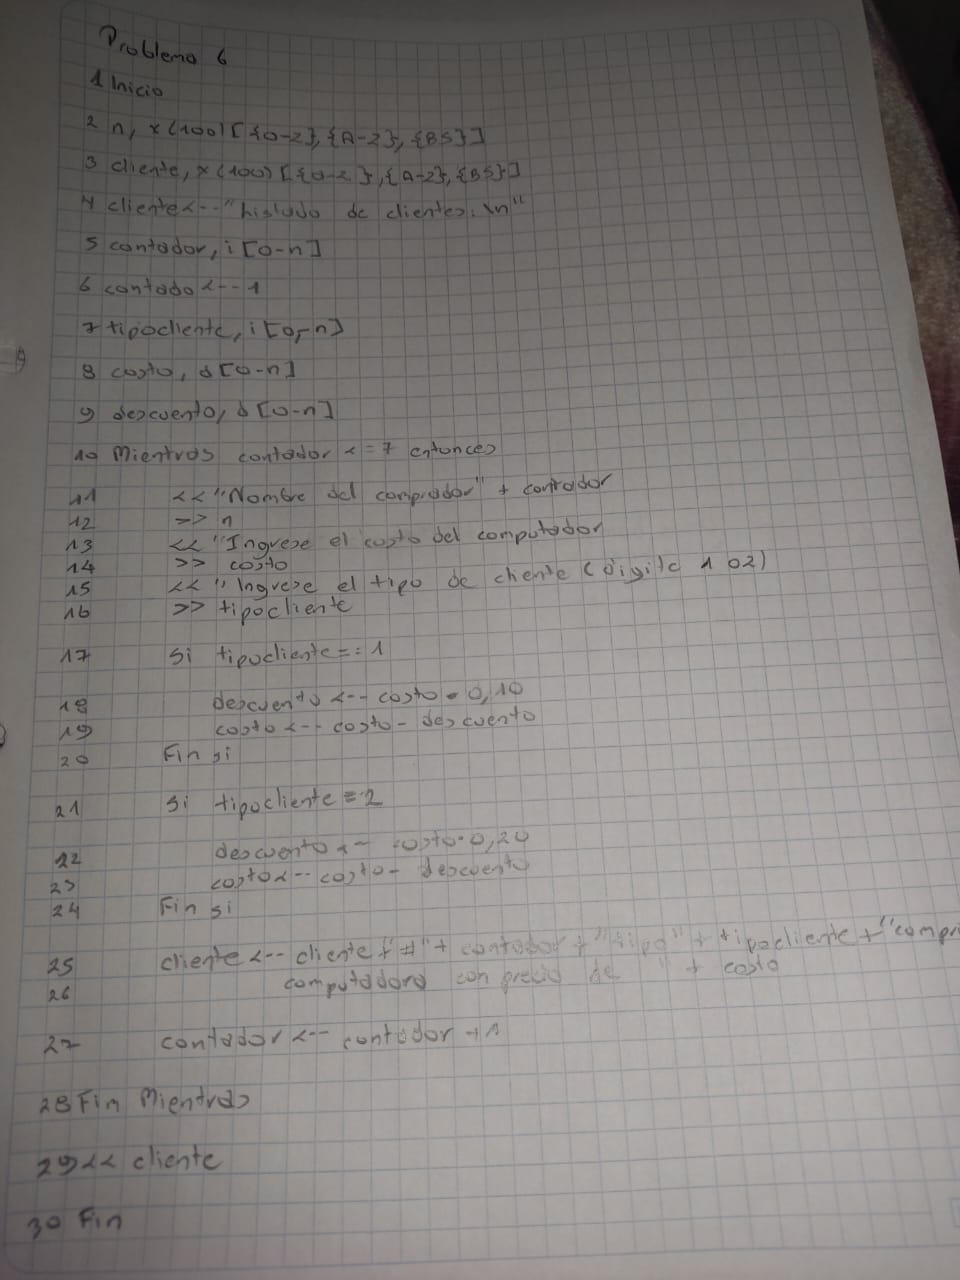 Problema 6
1 Inicio
2 n, x(100) [{0-z}, {A-Z}, {BS}]
3 cliente, x(100) [{0-z}, {A-Z}, {BS}]
4 cliente<--"histado de clientes: \n"
5 contador, i [0-n]
6 contado <-- 1
7 tipocliente, i [0,-n]
8 costo, d [0-n]
9 descuento, d [0-n]
10 Mientras contador <= 7 entonces
11 <<"Nombre del comprador" + contrador
12 => n
13 << "Ingrese el costo del computador
14 >> costo
15 << "Ingrese el tipo de cliente (digite 1 o2)
16 >> tipocliente
17 si tipocliente == 1
18 descuento <-- costo * 0,10
19 costo <-- costo - descuento
20 Fin si
21 si tipocliente = 2
22 descuento <-- costo * 0,20
23 costo <-- costo - descuento
24 Fin si
25 cliente <-- cliente + "#" + contador + "tipo" + tipocliente + "compr
26 computadora con precio de " + costo
27 contador <-- contador + 1
28 Fin Mientras
29 << cliente
30 Fin